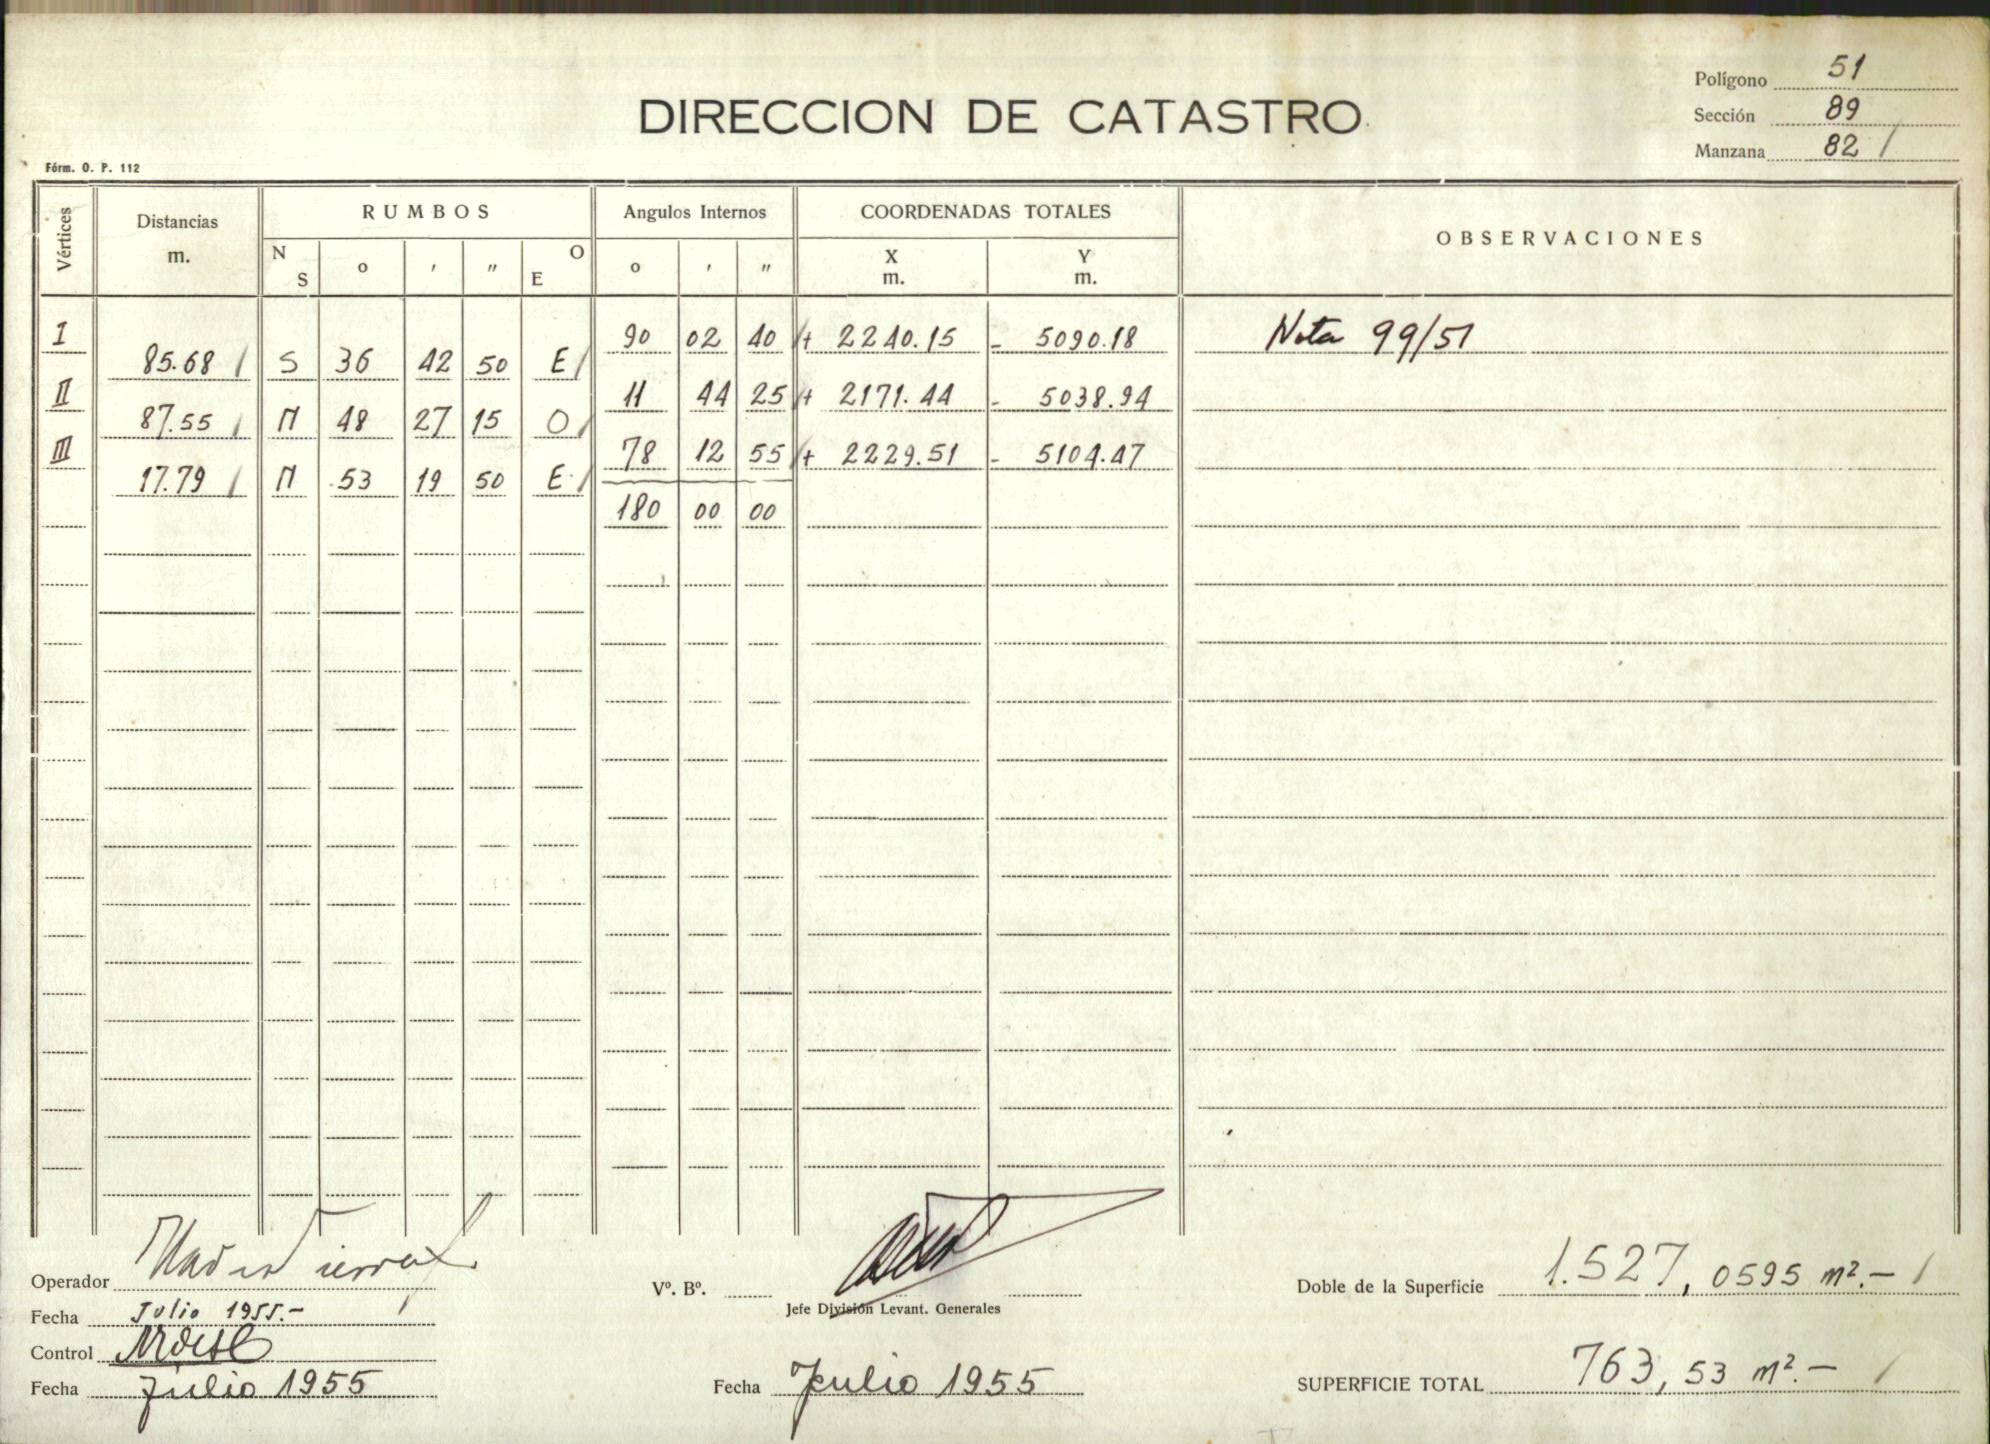 Polígono 51
DIRECCION DE CATASTRO
Sección 89
Manzana 82 /
Fórm. O. P. 112
Vértices Distancias m. RUMBOS N S o ' " O E Angulos Internos o ' " COORDENADAS TOTALES X m. Y m. OBSERVACIONES
I 90 02 40 + 2240.15 - 5090.18 Nota 99/51
85.68 / S 36 42 50 E /
II 11 44 25 + 2171.44 - 5038.94
87.55 / N 48 27 15 O /
III 78 12 55 + 2229.51 - 5104.47
17.79 / N 53 19 50 E /
180 00 00
Operador
Vº. Bº.
Doble de la Superficie 1.527,0595 m².- /
Jefe División Levant. Generales
Fecha Julio 1955.- /
Control
Fecha Julio 1955
Fecha Julio 1955
SUPERFICIE TOTAL 763,53 m².- /